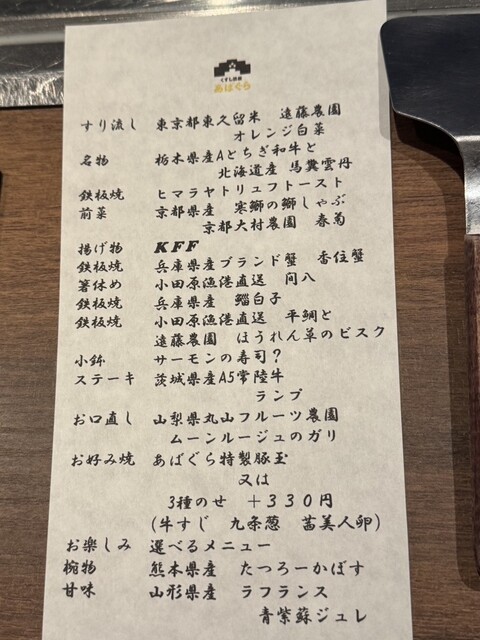 くずし鉄板
あばぐら
すり流し 東京都東久留米 遠藤農園
オレンジ白菜
名物 栃木県産Aとちぎ和牛と
北海道産 馬糞雲丹
鉄板焼 ヒマラヤトリュフトースト
前菜 京都県産 寒鰤の鰤しゃぶ
京都大村農園 春菊
揚げ物 KFF
鉄板焼 兵庫県産ブランド蟹 香住蟹
箸休め 小田原漁港直送 間八
鉄板焼 兵庫県産 鯔白子
鉄板焼 小田原漁港直送 平鯛と
遠藤農園 ほうれん草のビスク
小鉢 サーモンの寿司?
ステーキ 茨城県産A5常陸牛
ランプ
お口直し 山梨県丸山フルーツ農園
ムーンルージュのガリ
お好み焼 あばぐら特製豚玉
又は
3種のせ +330円
(牛すじ 九条葱 茜美人卵)
お楽しみ 選べるメニュー
椀物 熊本県産 たつろーかぼす
甘味 山形県産 ラフランス
青紫蘇ジュレ